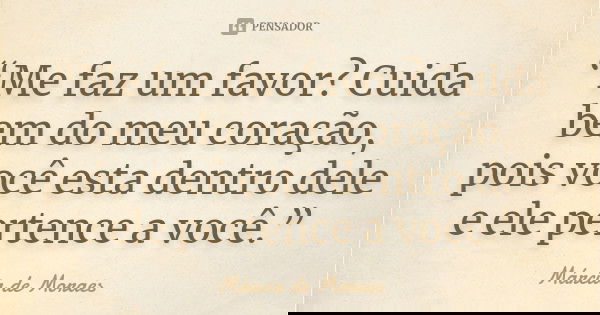 PENSADOR
“Me faz um favor? Cuida
bem do meu coração,
pois você esta dentro dele
e ele pertence a você.”
Márcia de Moraes